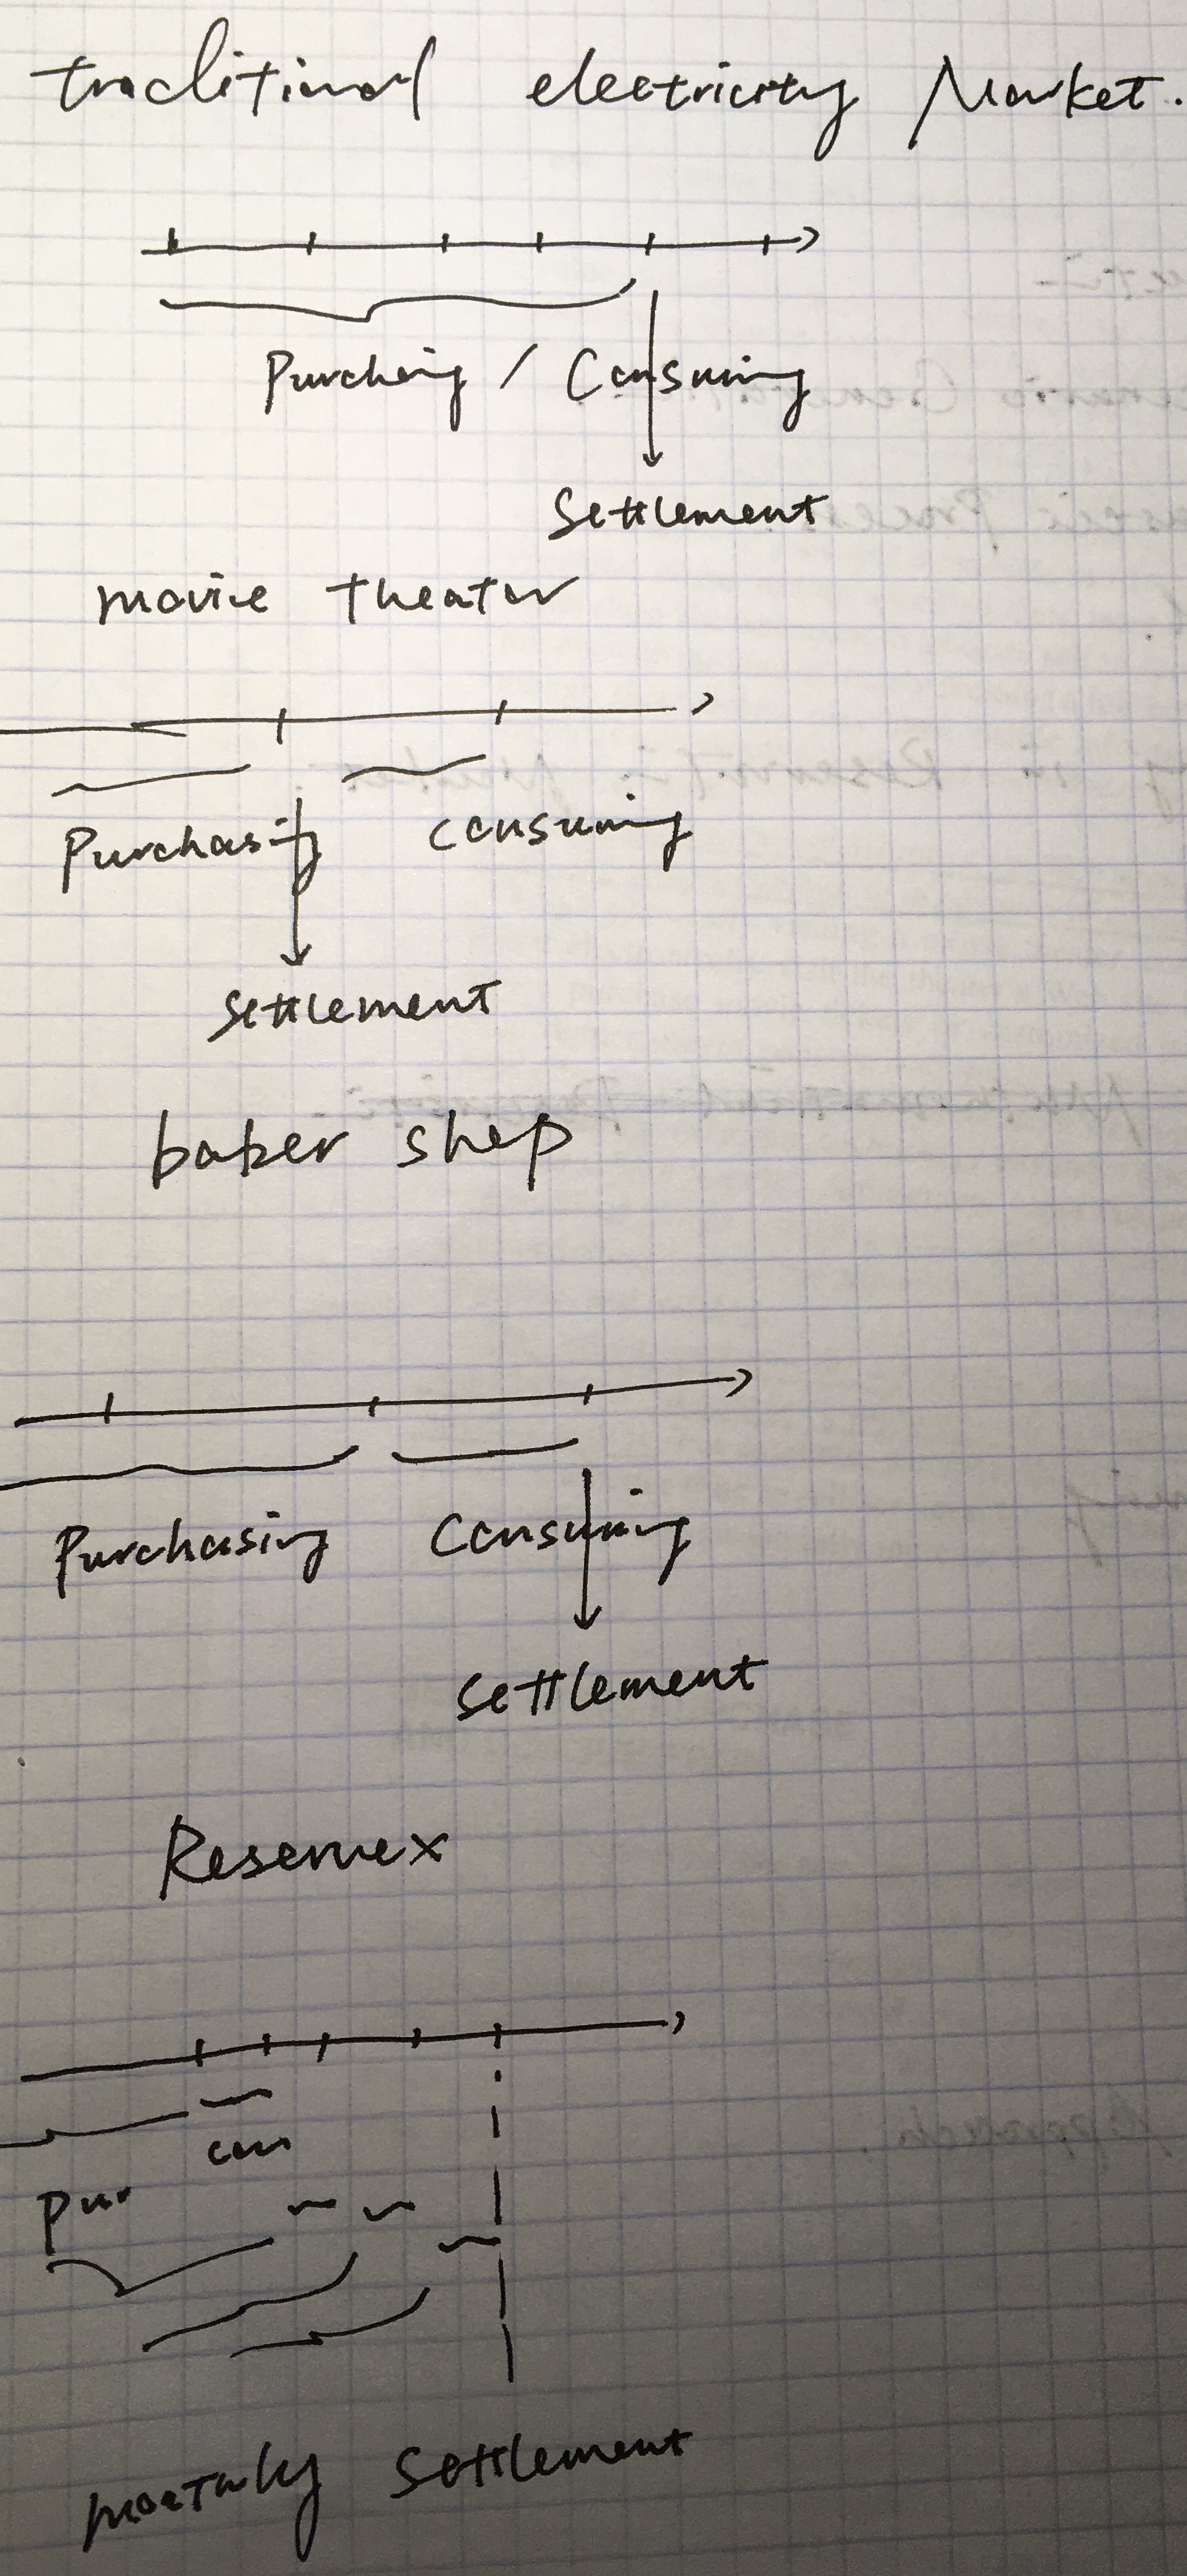 traditional electricity Market.
Purchasing / Consuming
Settlement
movie theater
Purchasing consuming
Settlement
baker shop
Purchasing Consuming
Settlement
Reservex
con
Pur
monthly Settlement